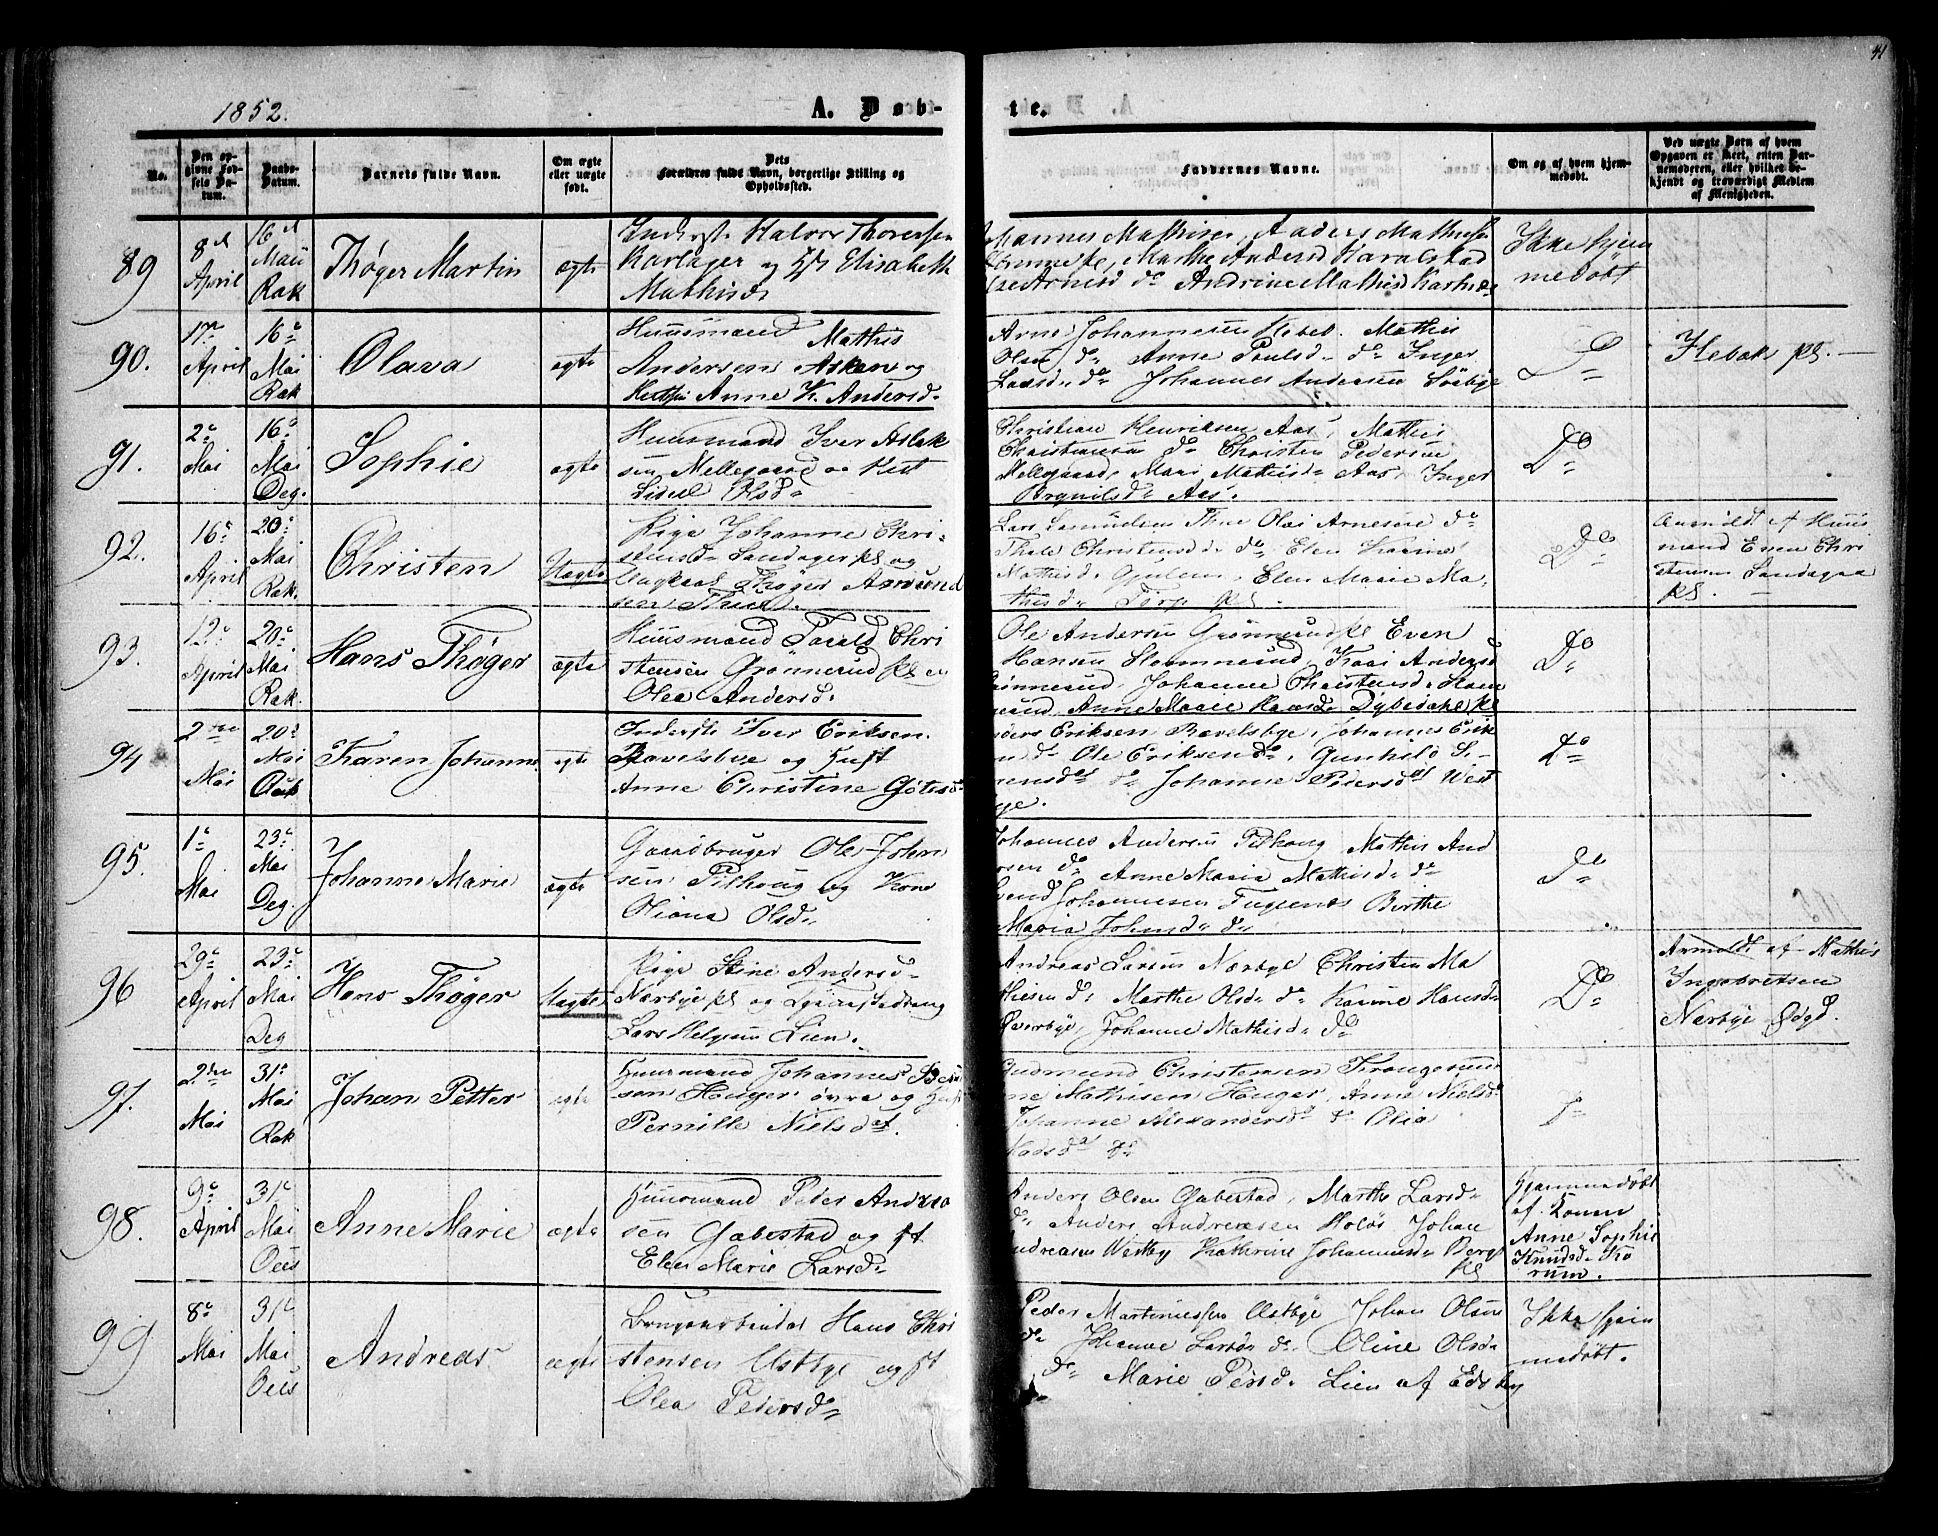 41
1852.
A. Døb-
te.
No.
Den op-
givne Fød-
sels Da-
tum.
Daabs-
Datum.
Barnets fulde Navn.
Om ægte
eller uægte
født.
Dets
Forældres fulde Navn, borgerlige Stilling og
Opholdssted.
Faddernes Navne.
Om og af hvem hjem-
medøbt.
Ved uægte Barn af hvem
Opgaven er skeet, enten Bar-
nemoderen, eller hvilket be-
kjendt og troværdigt Medlem
af Menigheden.
89
8d
April
16d
Maii
Rak
Thøger Martin
ægte
Inderst Halvor Thoresen
Karlager og Elisabeth
Mathisdr
Johannes Mathisen, Anders Mathisen
Mathe Andersd Haralstad
Arnesd do Andrine Mathisd
Ikke hjem
medøbt
90.
17n
April
16e
Mai
Rak
Olava
ægte
Huusmand Mathis
Andersen Asken og
Anne K. Andersd.
Arne Johannesen Mathis
Olsen do Anne Paulsd. do Inger
Larsd. do Johannes Andersen Söebye
Do
pl.
91.
2e
Mai
16e
Mai
Deg.
Sophie
ægte
Huusmand Iver Aslak
sen Mellegaard og
Sidsel Olsd.
Christian Henriksen Aas, Mathis
Christiansen do Christen Pedersen
Mellegaard, Mari Mathisd. Aas, Inger
Brynilsd. Aas.
Do
92.
16e
April
20e
Mai
Rak.
Christen
Uægte
Pige Johanne Chri-
stensd. Sandager pl og
Ungkarl Thøger Amund
sen
Lars Samuelsen Olai Arnesen do
Thale Christensd. do Elen Karine
Mathisd. Gjulem, Elen Marie Ma-
thisd. Torp pl.
Do
Anmeldt af Huus
mand Even Chri
stensen Sandager
pl.
93.
12e
April
20e
Mai
Rak.
Hans Thøger
ægte
Huusmand Torald Chri
stensen Grønnerud pl og
Olea Andersd.
Ole Andersen Grønnerud pl Even
Hansen Kari Andersd
Grønnerud, Johanne Christensd.
Anne Marie Hansd. Dybedahl pl
Do
94
2den
Mai
20d
Mai
Rak
Karen Johanne
ægte
Inderst Iver Eriksen
Ravelsbye og Hust
Anne Christine
Eriksen Ravelsbye, Johannes Erik
sen do Ole Eriksen do, Gunhild Si-
mensdt do Johanne Pedersdt West
bye.
Do
95.
1e
Mai
23e
Mai
Deg.
Johanne Marie
ægte
Gaardbruger Ole John
sen Pilhoug og Kone
Oliana Olsd.
Johannes Andersen Pilhoug Mathis And
ersen do Anne Maria Mathisd. do
Johannesen Fuglenes Birthe
Maria Johnsd. do
Do
96
29e
April
23e
Mai
Deg
Hans Thøger
Uægte
Pige Stine Andersd.
Nærbye pl og
Lars Helgesen Lien.
Andreas Larsen Nærbye Christen Ma
thiesen do Marthe Olsd. do Karine Hansd.
Øverbye, Johanne Mathisd. do
Do
Anmeldt af Mathis
Ingebretsen
Nærbye
97.
2den
Mai
31te
Mai
Rak
Johan Petter
ægte
Huusmand Johannes
sen Houger øvre og Hust
Pernille Nielsdt.
Gudmund Christensen Krougsrud
Mathisen Houger, Anne Nielsd.
Johanne Alexandersd do Olia
Madsdt do
98.
9e
April
31e
Mai
Oees
Anne Marie
ægte
Huusmand Peder Andrea
sen Gabestad og H
Elen Marie Larsd.
Anders Olsen Gabestad, Marthe Larsd.
do Anders Andreasen Holøs Johan
Andreasen Westby Kathrine Johannesd. Berg
pl
Hjemmedøbt
af Konen
Anne Sophie
Knudsd. Ko
rum.
99
8e
Mai
31e
Mai
Oees
Andreas
ægte
Brugsarbeider Hans Chri
stensen Ustbye og H
Olea Pedersd.
Peder Martiniussen Ustbye Johan Olsen
do Johanne Larsd. do. Oline Olsd.
do Marie Persd. Lien af Edsberg
Ikke hjem
medøbt.